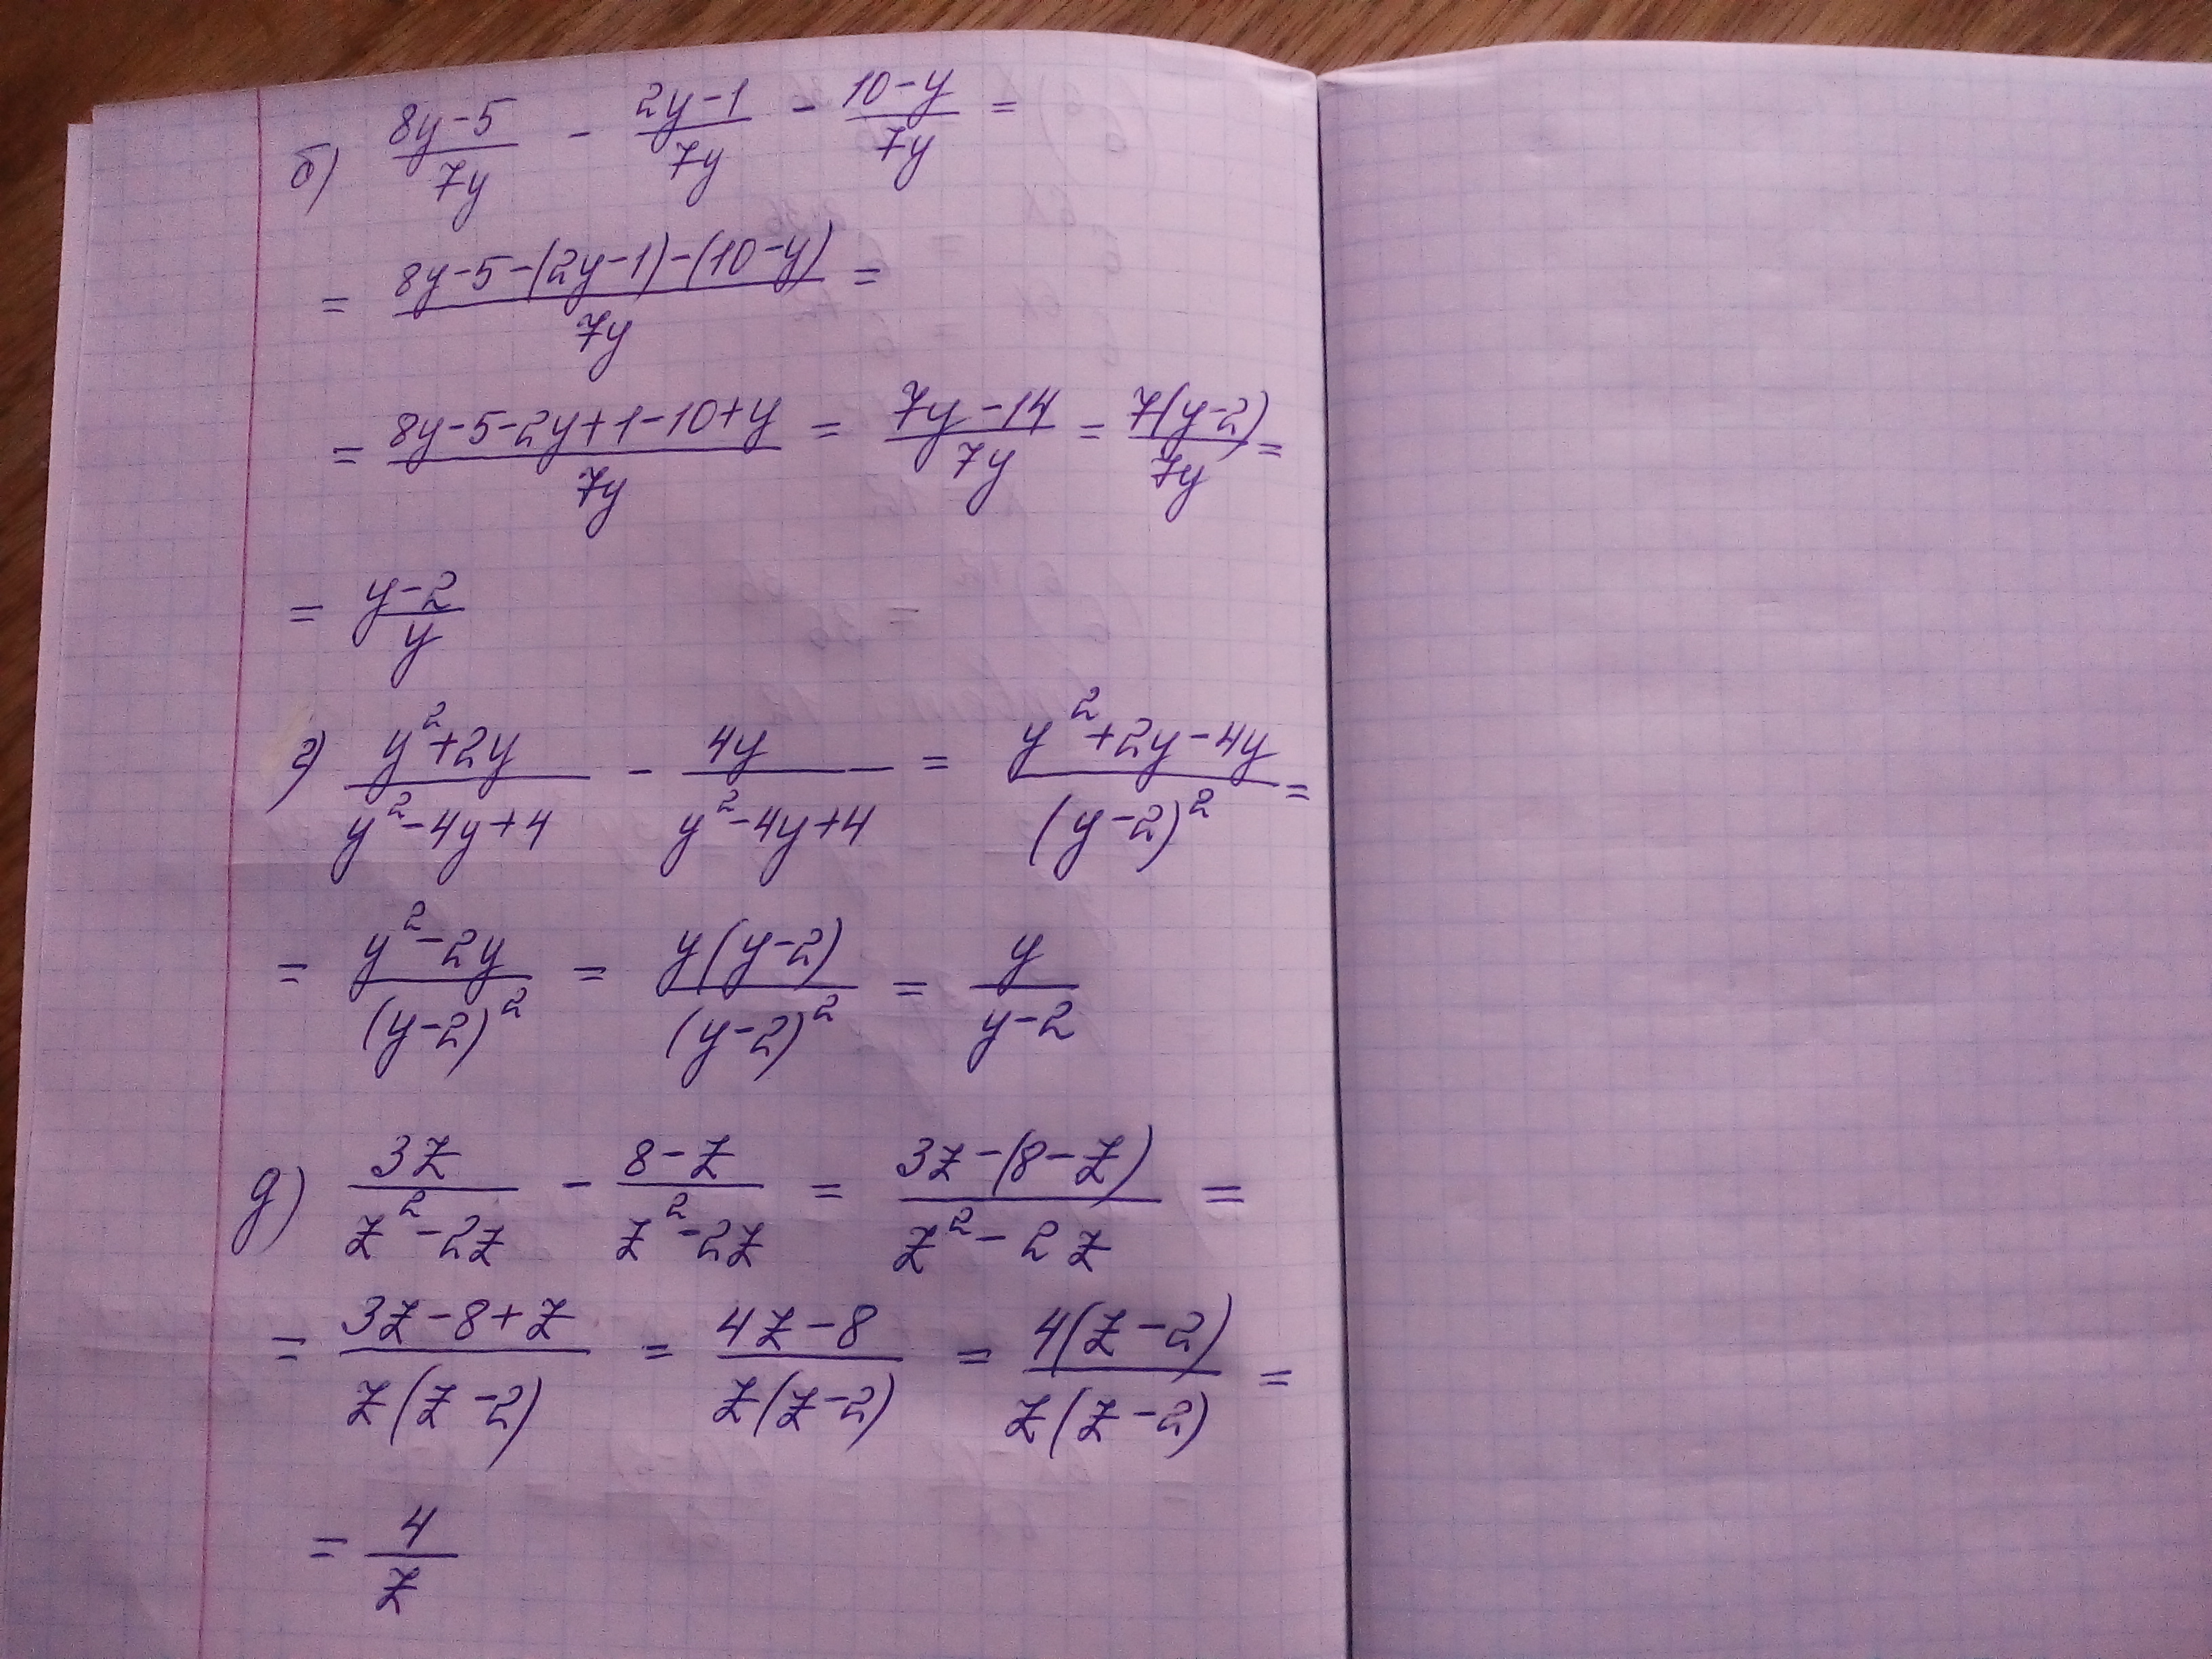 б) (8y-5)/(7y) - (2y-1)/(7y) - (10-y)/(7y) =
= (8y-5-(2y-1)-(10-y))/(7y) =
= (8y-5-2y+1-10+y)/(7y) = (7y-14)/(7y) = (7(y-2))/(7y) =
= (y-2)/y
г) (y²+2y)/(y²-4y+4) - (4y)/(y²-4y+4) = (y²+2y-4y)/((y-2)²) =
= (y²-2y)/((y-2)²) = (y(y-2))/((y-2)²) = y/(y-2)
д) (3z)/(z²-2z) - (8-z)/(z²-2z) = (3z-(8-z))/(z²-2z) =
= (3z-8+z)/(z(z-2)) = (4z-8)/(z(z-2)) = (4(z-2))/(z(z-2)) =
= 4/z